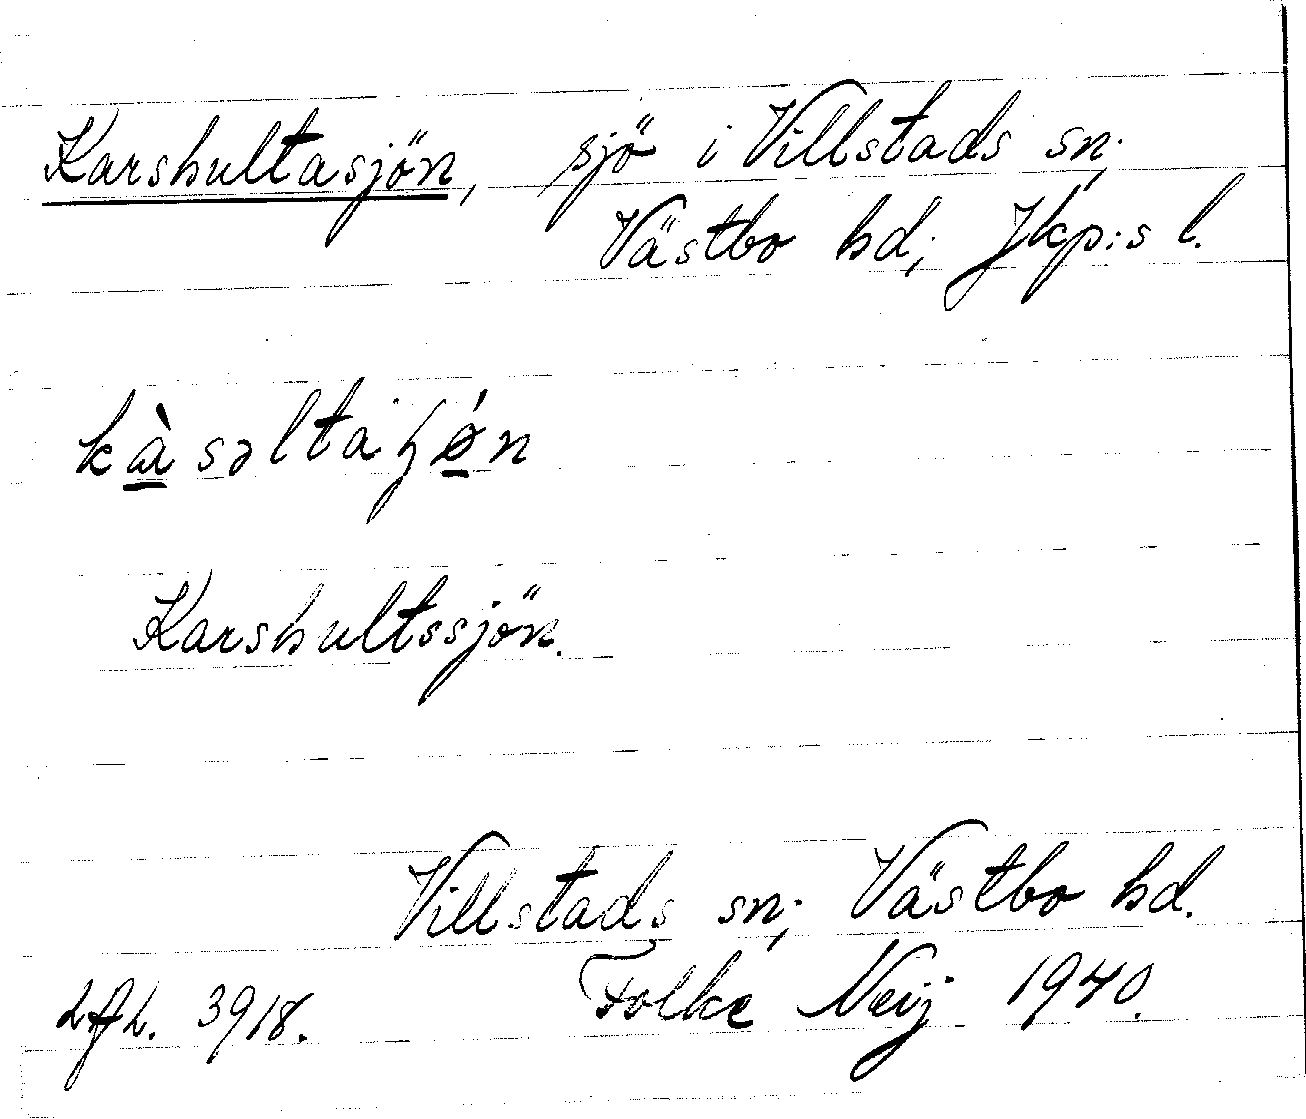 Karshultasjön, sjö i Villstads sn;
Västbo hd; Jkp:s l.
kàsəltaɧǿn
Karshultssjön.
Villstads sn; Västbo hd.
Folke Neij 1940.
LAL. 3918.